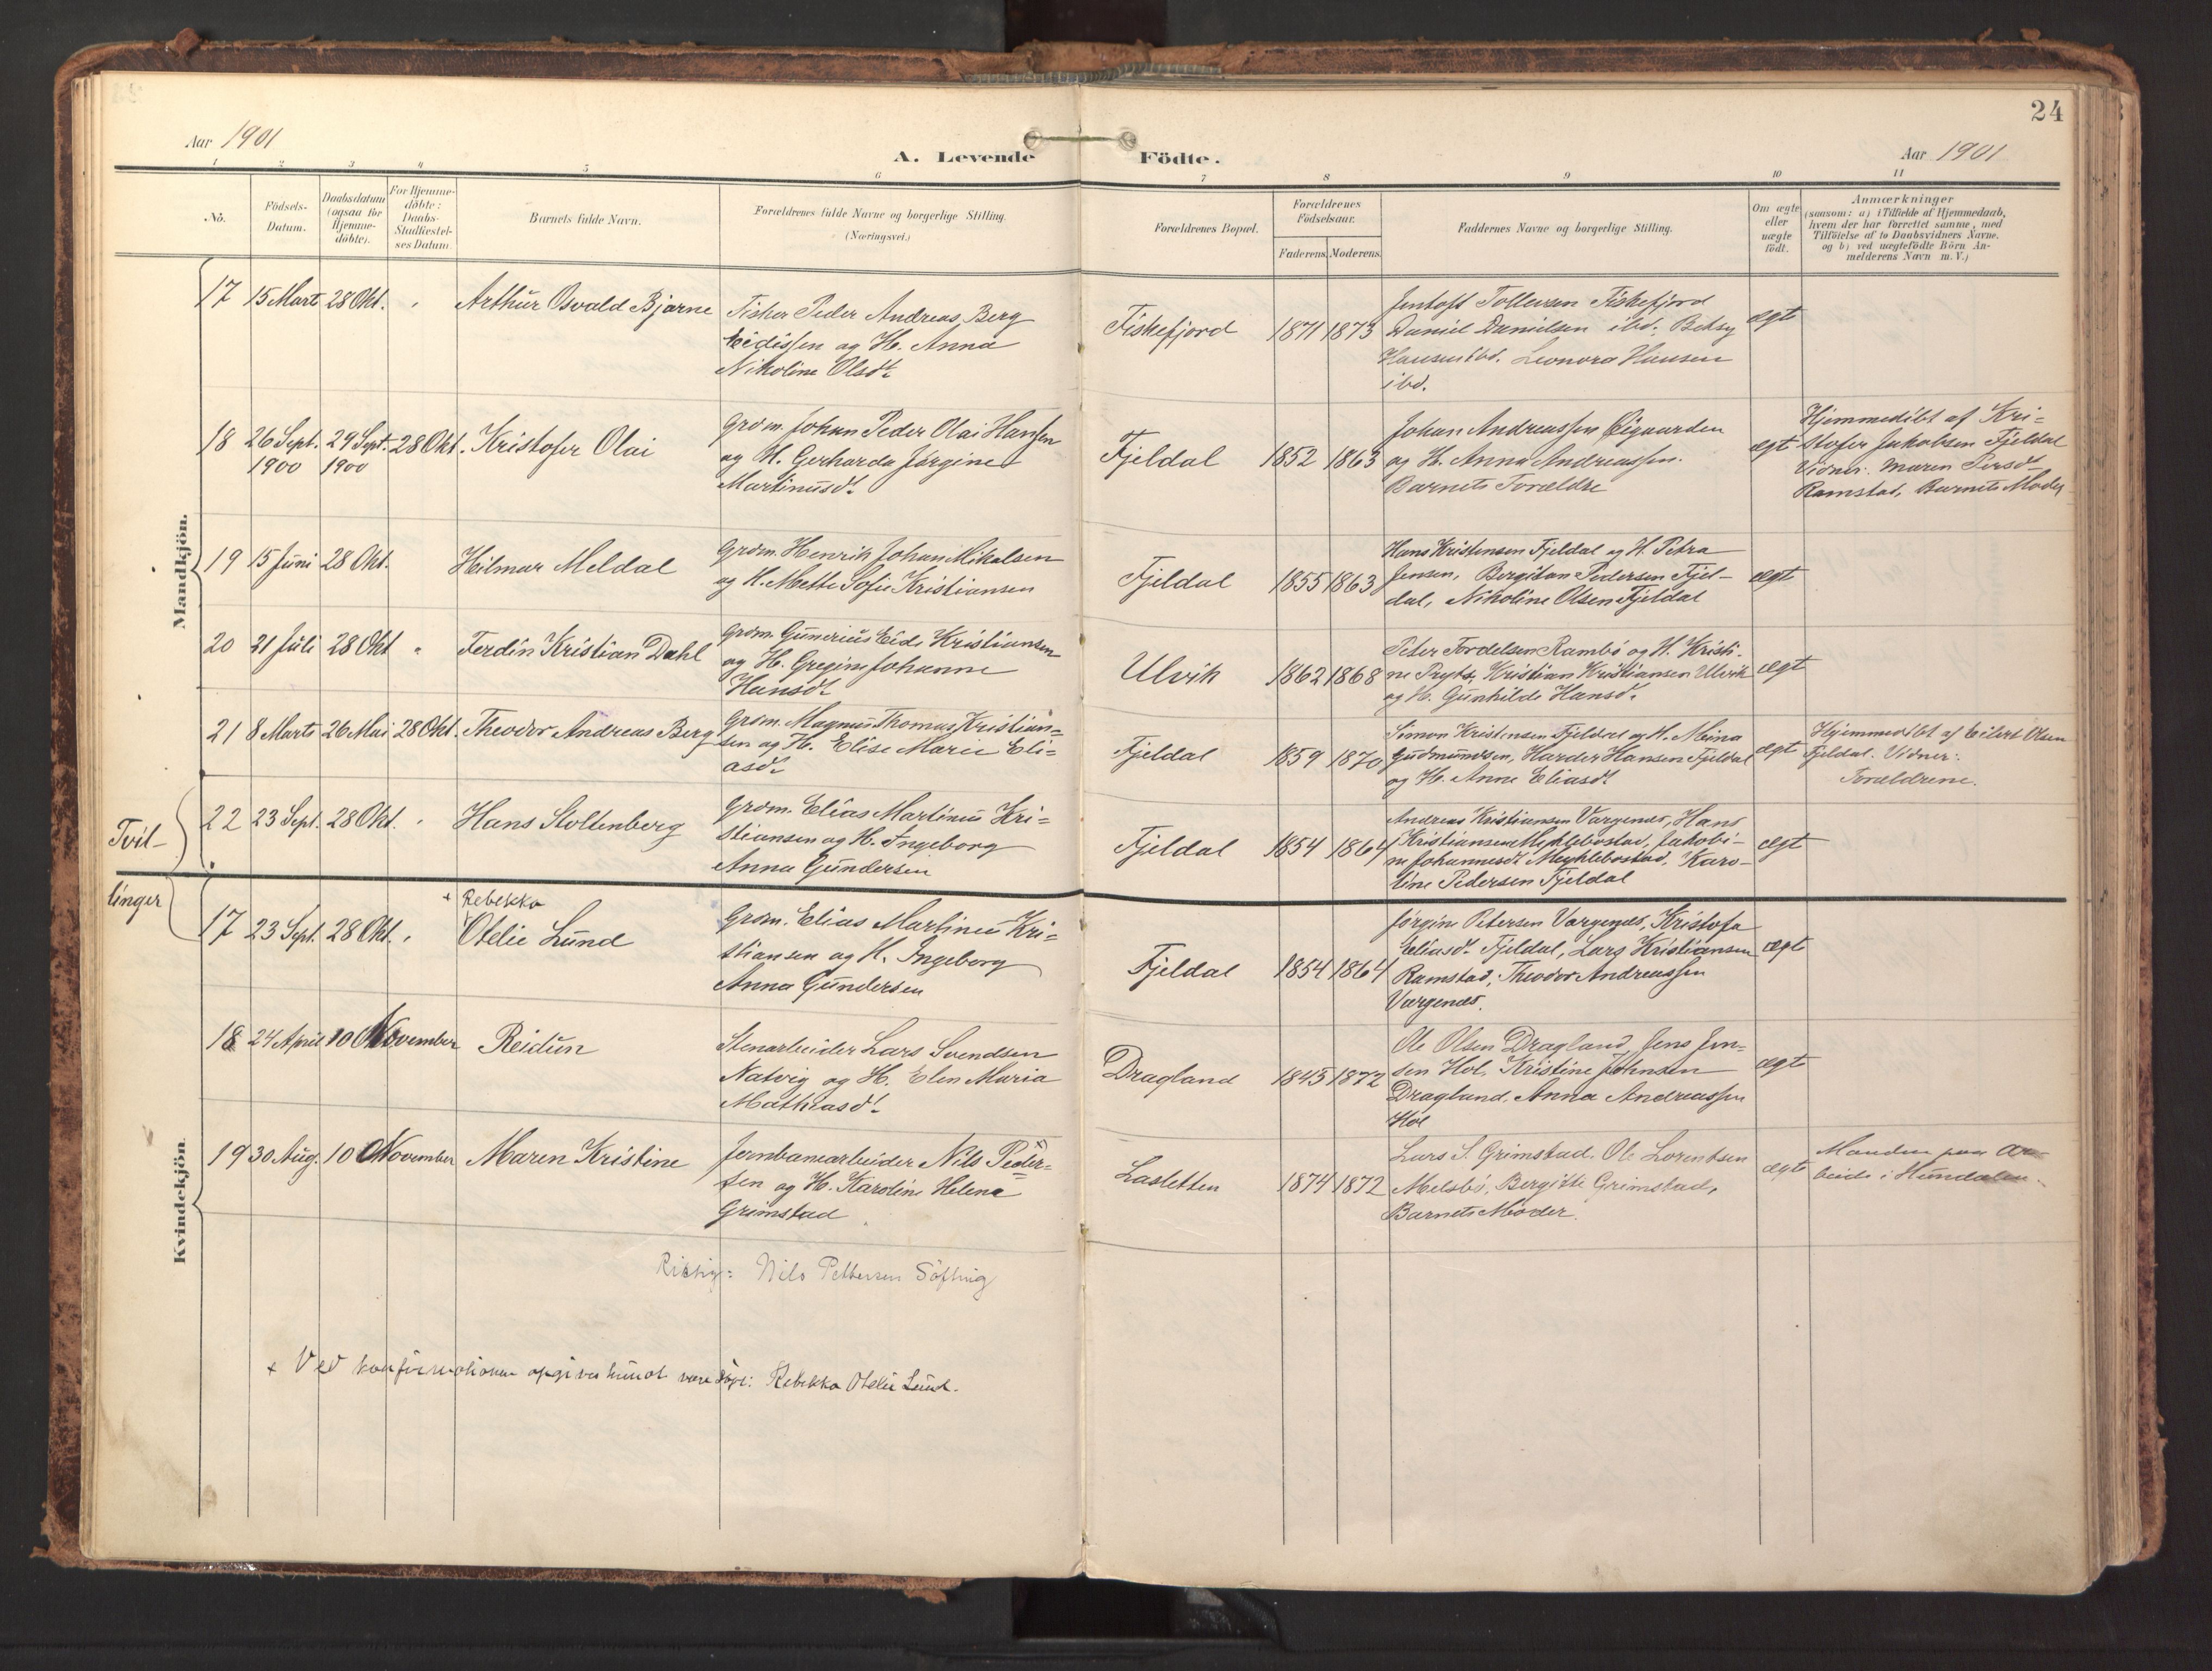 24
Aar 1901
A. Levende Födte.
Aar 1901
1 2 3 4 5 6 7 8 9 10 11
No.
Födsels-
Datum.
Daabsdatum
(ogsaa for
Hjemme-
döbte).
For Hjemme-
döbte:
Daabs-
Stadfæstel-
ses Datum.
Barnets fulde Navn.
Forældrenes fulde Navne og borgerlige Stilling.
(Næringsvei.)
Forældrenes Bopæl.
Forældrenes
Födselsaar.
Faderens. Moderens.
Faddernes Navne og borgerlige Stilling.
Om ægte
eller
uægte
födt.
Anmærkninger
(saasom: a) i Tilfælde af Hjemmedaab,
hvem der har forrettet samme, med
Tilföielse af to Daabsvidners Navne,
og b) ved uægtefödte Börn An-
melderens Navn m. V.)
Mandkjön.
17 15 Marts 28 Okt. " Arthur Osvald Bjarne
Fisker Peder Andreas Berg
Eidissen og H. Anna
Nikoline Olsdt.
Fiskefjord 1871 1873
Jentoft Tollevsen Fiskefjord
Daniel Danielsen ibd. Betsy
Hansen ibd. Leonora Hansen
ibd.
ægte
18 26 Sept. 1900 29 Sept. 1900 28 Okt. Kristofer Olai
Grdm. Johan Peder Olai Hansen
og H. Gerharda Jørgine
Martinusdt.
Fjeldal 1852 1863
Johan Andreassen Øigaarden
og H. Anna Andreassen.
Barnets Forældre
ægt
Hjemmedöbt af Kri-
stofer Jakobsen Fjeldal
Vidner: Maren Persdt.
Ramstad, Barnets Moder
19 15 Juni 28 Okt. Hilmar Meldal
Grdm. Henrik Johan Mikalsen
og H. Mette Sofie Kristiansen
Fjeldal 1855 1863
Hans Kristensen Fjeldal og H. Petra
Jensen, Bergitan Pedersen Fjel-
dal, Nikoline Olsen Fjeldal
ægte
20 21 Juli 28 Okt " Ferdin Kristian Dahl
Grdm. Gunerius Eide Kristiansen
og H. Gregine Johanne
Hansdt
Ulvik 1862 1868
Peter Tordelsen Rambö og H. Kristi-
ne Prytz, Kristian Kristiansen Ulvik
og H. Gunhilde Hansdt.
ægte
21 8 Marts 26 Mai 28 Okt. Theodor Andreas Berg
Grdm. Magnus Thomas Kristian-
sen og H. Elise Marie Eli-
asdt.
Fjeldal 1859 1870
Simon Kristensen Fjeldal og H. Mina
Gudmundsen, Harder Hansen Fjeldal
og H. Anne Eliasdt
ægte
Hjemmedöbt af Eilert Olsen
Fjeldal. Vidner:
Forældrene.
Tvil-
22 23 Sept. 28 Okt. " Hans Stoltenberg
Grdm. Elias Martinus Kri-
stiansen og H. Ingeborg
Anna Gundersen
Fjeldal 1854 1864
Andreas Kristiansen Vargenes, Hans
Kristiansen Myklebostad, Jakobi-
ne Johannesdt. Myklebostad, Karo-
line Pedersen Fjeldal
ægte
linger
+ Rebekka
17 23 Sept. 28 Okt. " Otelie Lund
Grdm. Elias Martinus Kri-
stiansen og H. Ingeborg
Anna Gundersen
Fjeldal 1854 1864
Jørgine Petersen Vargenes, Kristofa
Eliasdt. Fjeldal, Lars Kristiansen
Ramstad, Theodor Andreassen
Vargenes.
ægte
18 24 April 10 November Reidun
Stenarbeider Lars Svendsen
Natvig og H. Elen Maria
Mathiasdt.
Dragland 1845 1872
Ole Olsen Dragland, Jens Jen-
sen Hol, Kristine Johnsen
Dragland, Anna Andreassen
Hol
ægte
Kvindekjön.
19 30 Aug. 10 November Maren Kristine
Jernbanearbeider Nils Peder-
sen og H. Karoline Helena
Grimstad
Lasletten 1874 1872
Lars S. Grimstad, Ole Lorentsen
Melsbö, Bergitte Grimstad,
Barnets Moder.
ægte
Manden paa Ar-
beide i Hundalen.
Riktig: Nils Pettersen Söfting
+ Ved konfirmationen opgives hun at være døpt: Rebekka Otelie Lund.